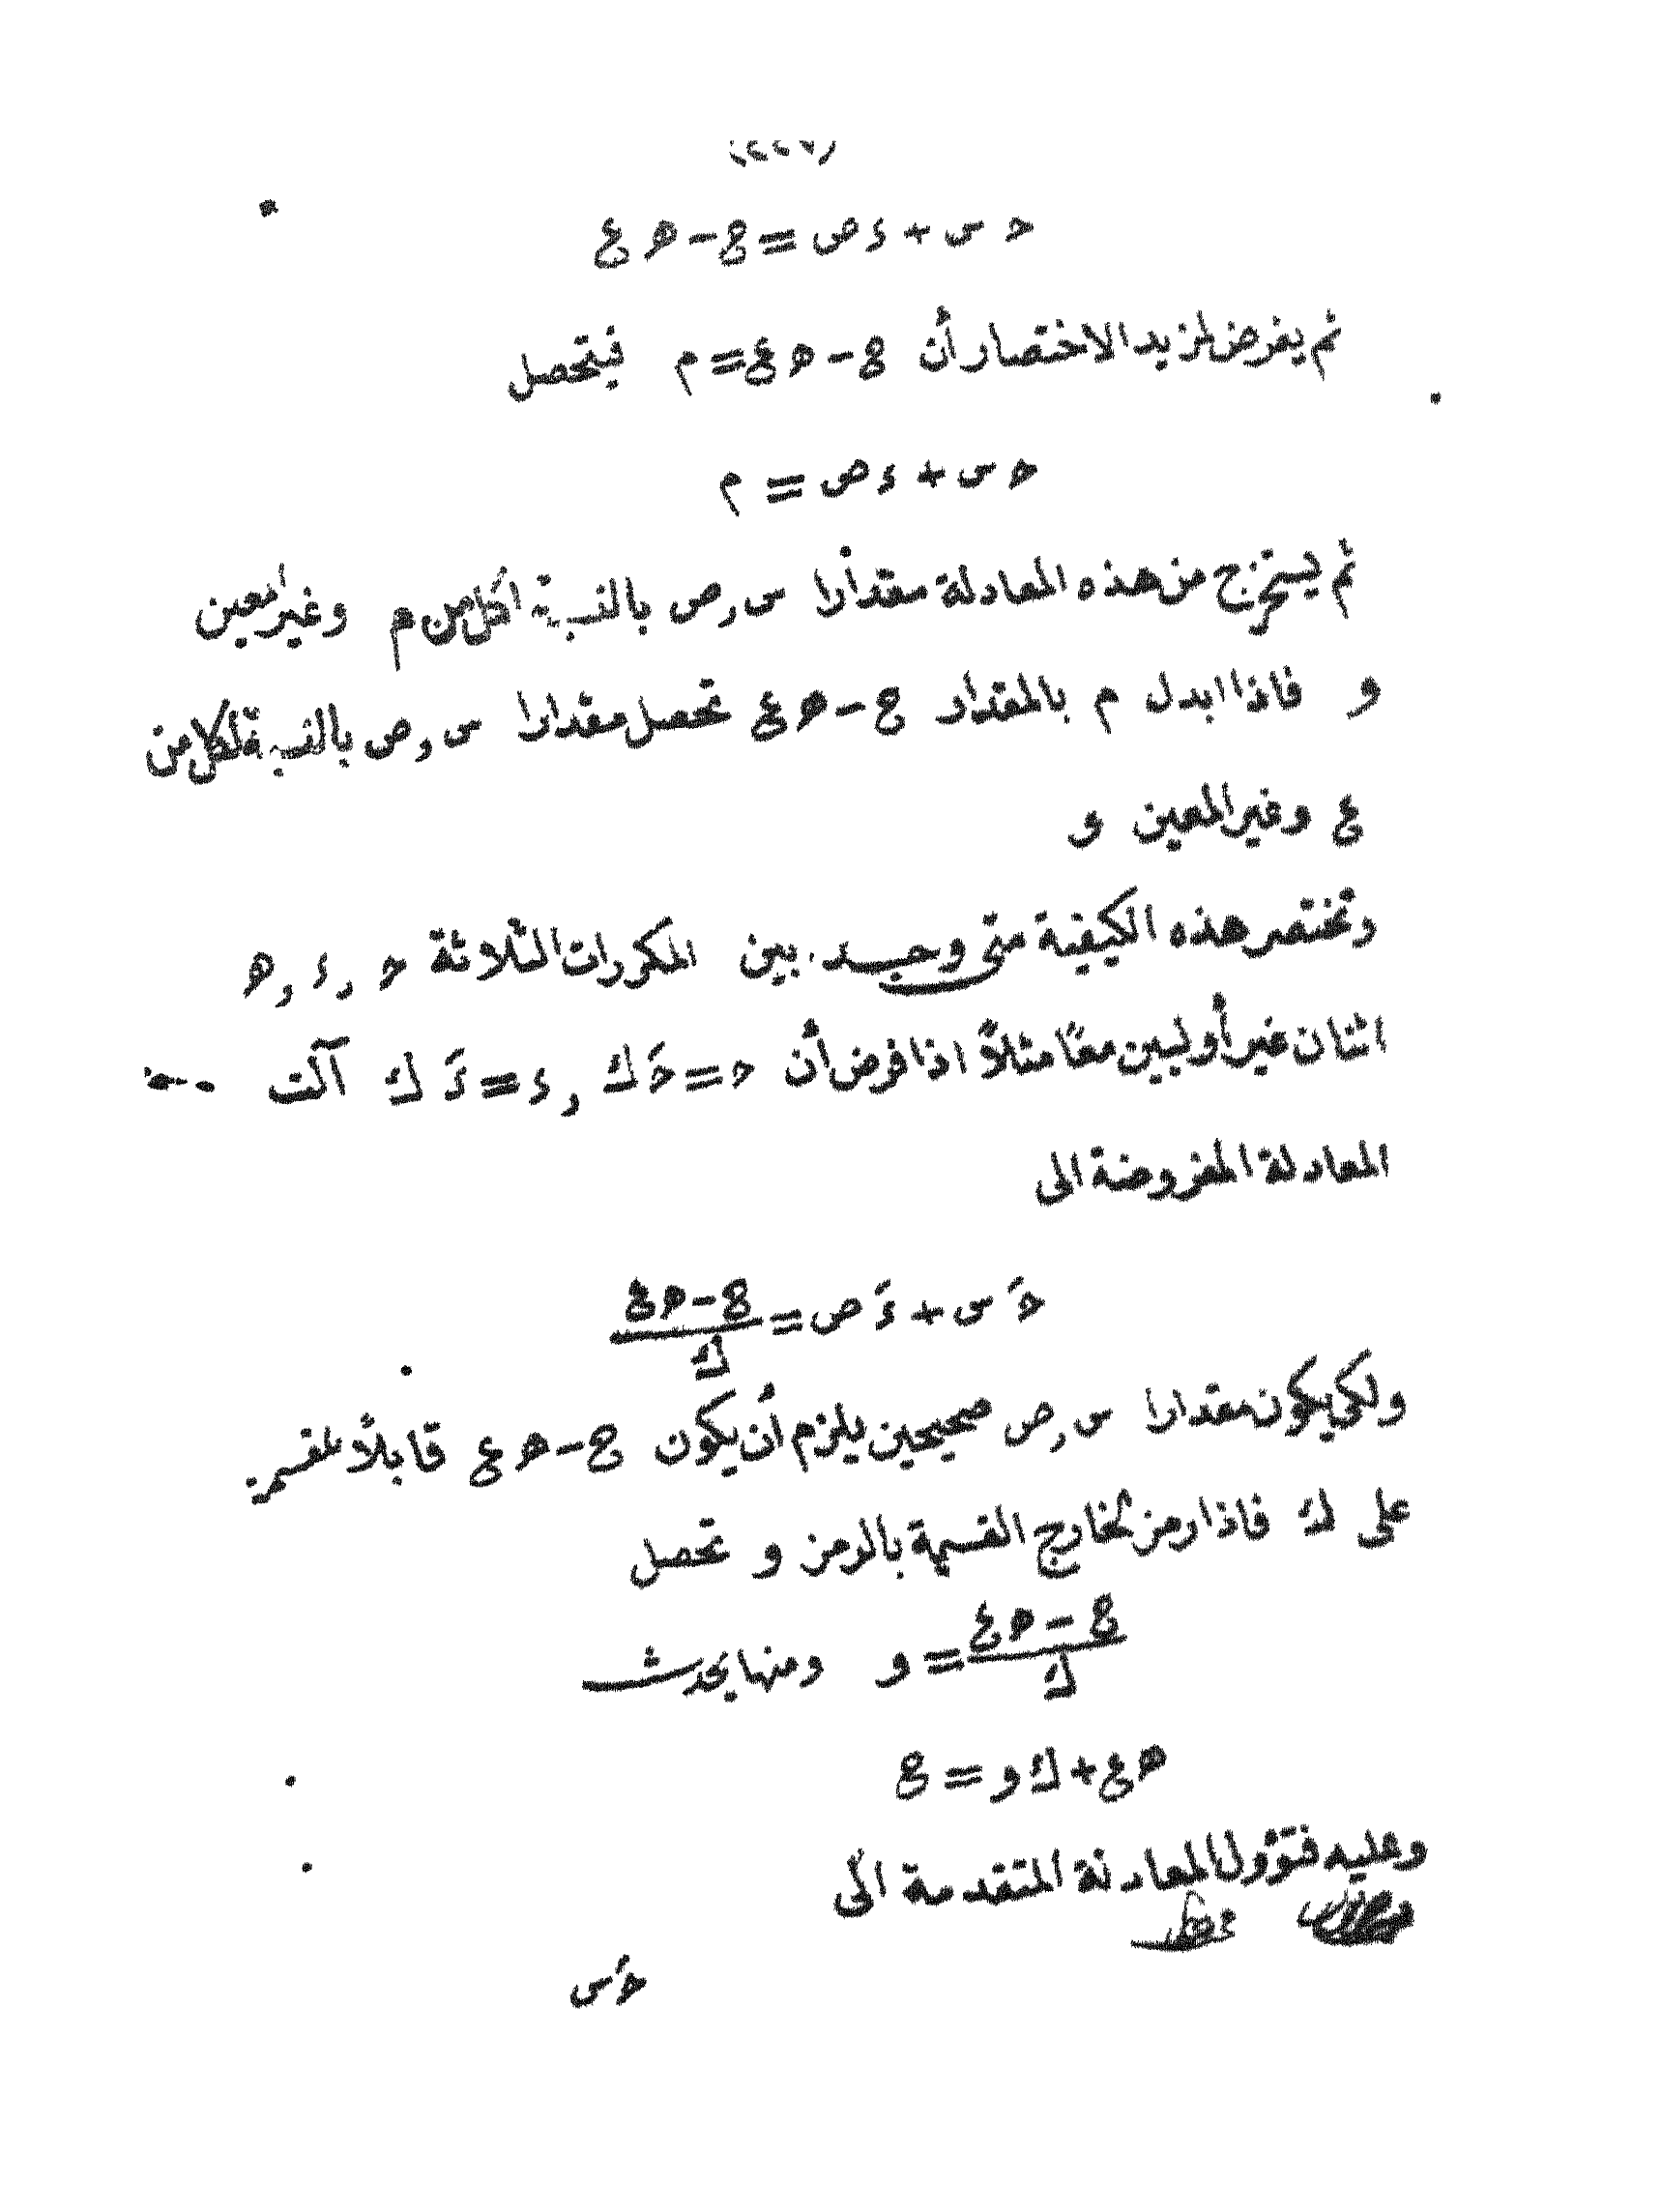 ح س + د ص = ج - ه ع
ثم يفرض لمزيد الاختصار أن ج - ه ع = م فيتحصل
ح س + د ص = م
ثم يستخرج من هذه المعادلة مقدارا س و ص بالنسبة لكل من م وغير معين
و فاذا ابدل م بالمقدار ج - ه ع تحصل مقدارا س و ص بالنسبة لكل من
ع وغير المعين و
وتختصر هذه الكيفية متى وجد بين المكررات الثلاثة ح و د و ه
اثنان غير أوليين معًا مثلاً اذا فرض أن ح = حَ ك و د = دَ ك آلت
المعادلة المفروضة الى
حَ س + دَ ص = (ج - ه ع) / ك
ولكي يكون مقدارا س و ص صحيحين يلزم أن يكون ج - ه ع قابلاً للقسمة
على ك فاذا رمز لخارج القسمة بالرمز و تحصل
(ج - ه ع) / ك = و ومنها يحدث
ه ع + ك و = ج
وعليه فتؤول المعادلة المتقدمة الى
حَ س